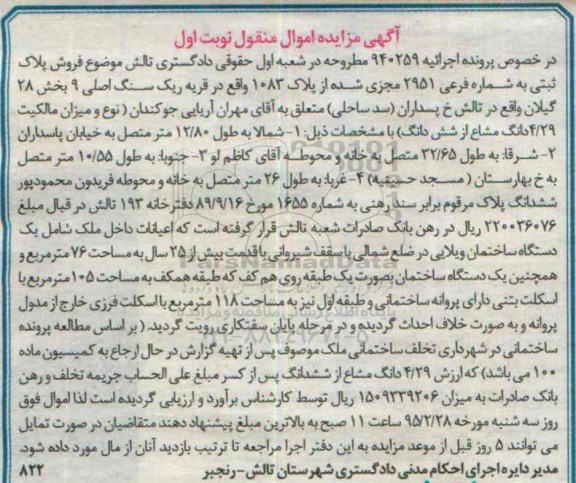 آگهی مزایده اموال منقول نوبت اول
در خصوص پرونده اجرائیه ۹۴۰۲۵۹ مطروحه در شعبه اول حقوقی دادگستری تالش موضوع فروش پلاک
ثبتی به شماره فرعی ۲۹۵۱ مجزی شده از پلاک ۱۰۸۳ واقع در قریه ریک سنگ اصلی ۹ بخش ۲۸
گیلان واقع در تالش خ پسداران (سد ساحلی) متعلق به آقای مهران آریایی جوکندان ( نوع و میزان مالکیت
۴/۲۹دانگ مشاع از شش دانگ) با مشخصات ذیل: ۱- شمالا به طول ۱۲/۸۰ متر متصل به خیابان پاسداران
۲- شرقا: به طول ۳۲/۶۵ متصل به خانه و محوطه آقای کاظم لو ۳- جنوبا: به طول ۱۰/۵۵ متر متصل
به خ بهارستان ( مسجد حسینیه) ۴- غربا: به طول ۲۶ متر متصل به خانه و محوطه فریدون محمودپور
ششدانگ پلاک مرقوم برابر سند رهنی به شماره ۱۶۵۵ مورخ ۸۹/۹/۱۶ دفترخانه ۱۹۳ تالش در قبال مبلغ
۲۲۰۰۳۶۰۷۶ ریال در رهن بانک صادرات شعبه تالش قرار گرفته است که اعیانات داخل ملک شامل یک
دستگاه ساختمان ویلایی در ضلع شمالی با سقف شیروانی با قدمت بیش از ۲۵ سال به مساحت ۷۶ مترمربع و
همچنین یک دستگاه ساختمان بصورت یک طبقه روی هم کف که طبقه همکف به مساحت ۱۰۵ مترمربع با
اسکلت بتنی دارای پروانه ساختمانی و طبقه اول نیز به مساحت ۱۱۸ مترمربع با اسکلت فرزی خارج از مدول
پروانه و به صورت خلاف احداث گردیده و در مرحله پایان سفتکاری رویت گردید. ( بر اساس مطالعه پرونده
ساختمانی در شهرداری تخلف ساختمانی ملک موصوف پس از تهیه گزارش در حال ارجاع به کمیسیون ماده
۱۰۰ می باشد) که ارزش ۴/۲۹ دانگ مشاع از ششدانگ پس از کسر مبلغ علی الحساب جریمه تخلف و رهن
بانک صادرات به میزان ۱۵۰۹۳۳۹۲۰۶ ریال توسط کارشناس برآورد و ارزیابی گردیده است لذا اموال فوق
روز سه شنبه مورخه ۹۵/۲/۲۸ ساعت ۱۱ صبح به بالاترین مبلغ پیشنهاد دهند متقاضیان در صورت تمایل
می توانند ۵ روز قبل از موعد مزایده به این دفتر اجرا مراجعه تا ترتیب بازدید آنان از مال مورد داده شود.
مدیر دایره اجرای احکام مدنی دادگستری شهرستان تالش-رنجبر ۸۲۲